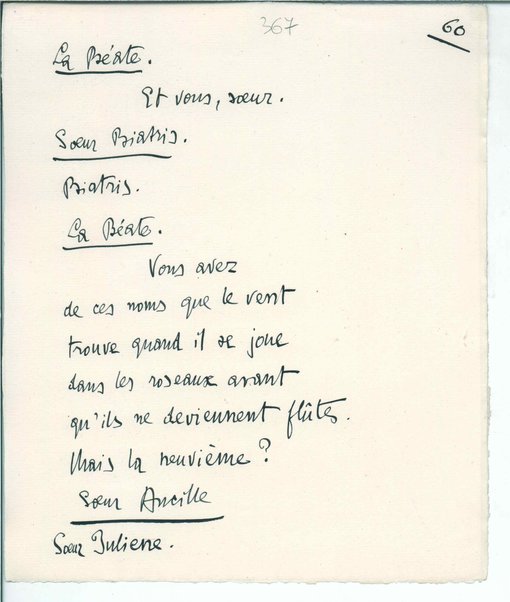 367
60
La Béate.
Et vous, sœur.
Sœur Biatris.
Biatris.
La Béate.
Vous avez
de ces noms que le vent
trouve quand il se joue
dans les roseaux avant
qu'ils ne deviennent flûtes.
Mais la neuvième ?
Sœur Ancille
Sœur Juliene.